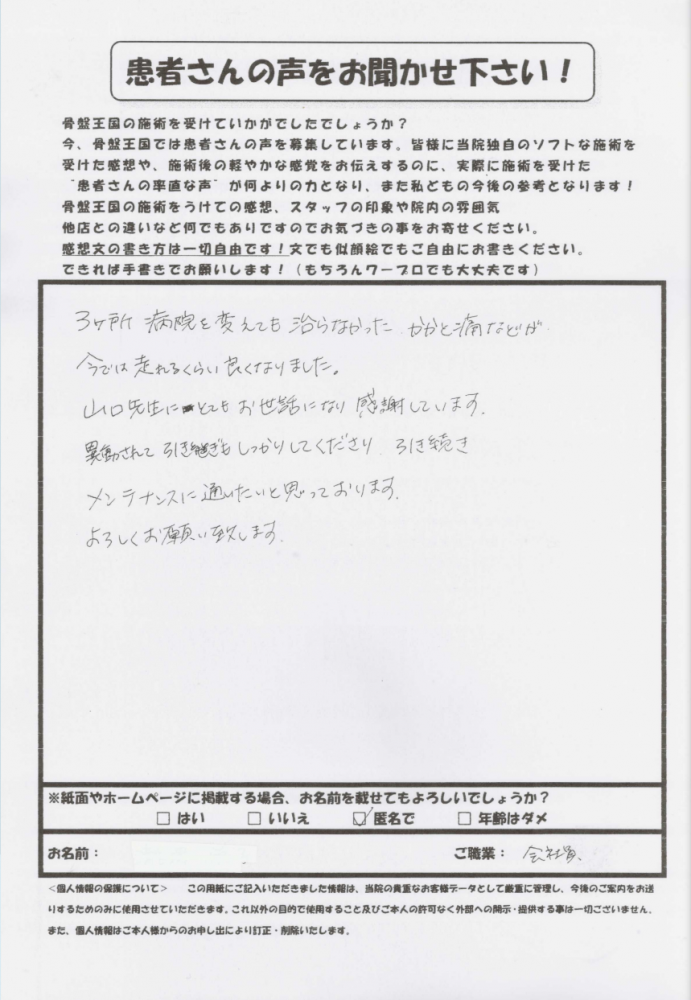 患者さんの声をお聞かせ下さい！
骨盤王国の施術を受けていかがでしたでしょうか？
今、骨盤王国では患者さんの声を募集しています。皆様に当院独自のソフトな施術を
受けた感想や、施術後の軽やかな感覚をお伝えするのに、実際に施術を受けた
“患者さんの率直な声”が何よりの力となり、また私どもの今後の参考となります！
骨盤王国の施術をうけての感想、スタッフの印象や院内の雰囲気
他店との違いなど何でもありですのでお気づきの事をお寄せください。
感想文の書き方は一切自由です！文でも似顔絵でもご自由にお書きください。
できれば手書きでお願いします！（もちろんワープロでも大丈夫です）
3ヶ所 病院を変えても治らなかった かかと痛などが
今では走れるくらい良くなりました。
山口先生にとてもお世話になり感謝しています。
異動されて引き継ぎもしっかりしてくださり 引き続き
メンテナンスに通いたいと思っております。
よろしくお願い致します。
※紙面やホームページに掲載する場合、お名前を載せてもよろしいでしょうか？
□ はい □ いいえ ☑ 匿名で □ 年齢はダメ
お名前： ご職業： 会社員
＜個人情報の保護について＞ この用紙にご記入いただきました情報は、当院の貴重なお客様データとして厳重に管理し、今後のご案内をお送
りするためのみに使用させていただきます。これ以外の目的で使用すること及びご本人の許可なく外部への開示・提供する事は一切ございません。
また、個人情報はご本人様からのお申し出により訂正・削除いたします。